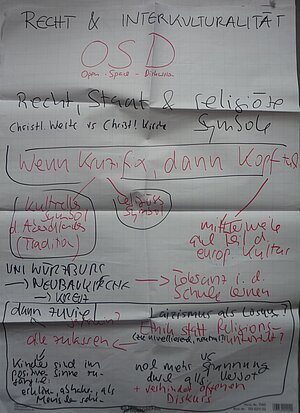 RECHT & INTERKULTURALITÄT
OSD
Open-Space-Diskussion
Recht, Staat & religiöse
Symbole
Christl. Werte vs Christl. Kirche
Wenn Kruzifix, dann Kopft
kulturelles
Symbol
d. Abendlandes
(Tradition)
religiöses
Symbol
mittlerweile
auch Teil d.
europ. Kultur
UNI WÜRZBURG
→ NEUBAUKIRCHE
→ KREUZ
→ Toleranz i. d.
Schule lernen
dann zuviel
alle zulassen
Laizismus als Lösung?
Ethik statt Religions-
unterricht?
vs
Kinder sind im
positive Sinne
noch mehr Spannung
durch all. Verbot
+ verhindert offenen
Diskurs